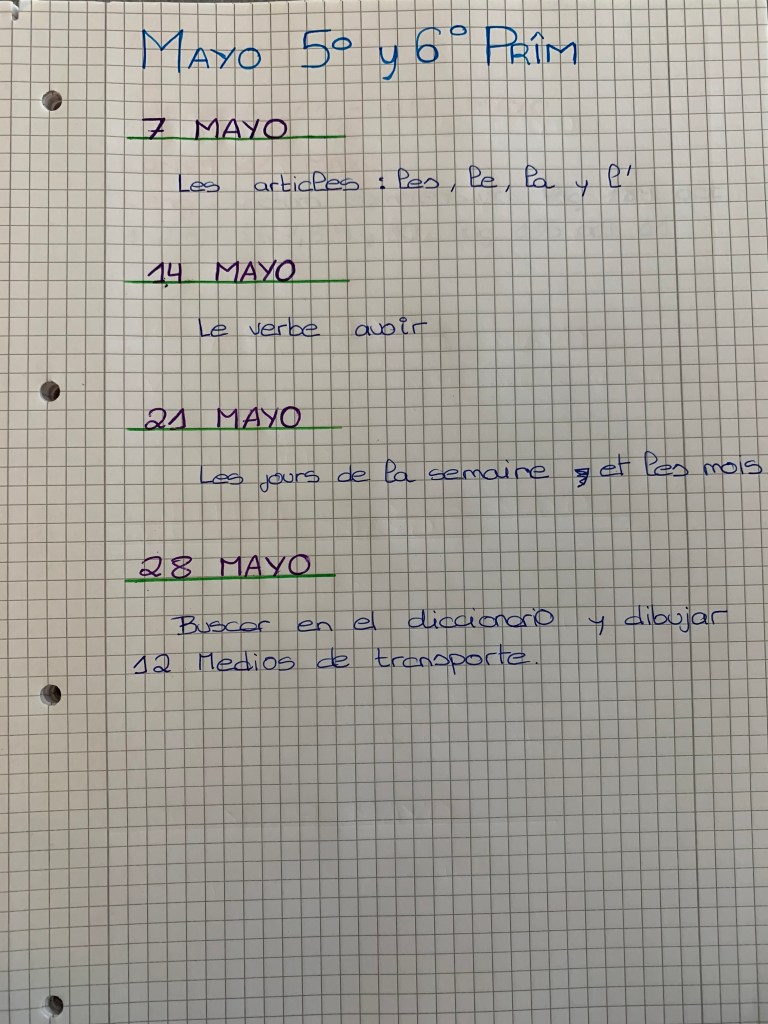 MAYO 5º y 6º PRÎM
7 MAYO
Les articles : les, le, la y l'
14 MAYO
Le verbe avoir
21 MAYO
Les jours de la semaine et les mois
28 MAYO
Buscar en el diccionario y dibujar
12 Medios de transporte.